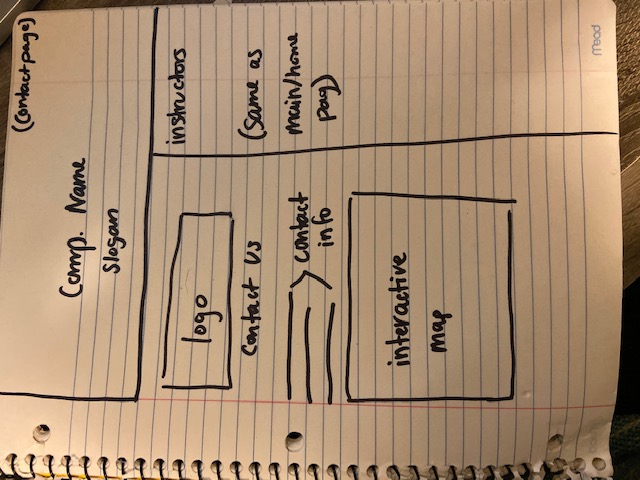 (Contact page)
Comp. Name
Slogan
logo
Contact Us
contact
info
interactive
map
instructors
(Same as
main/home
pag)
Mead